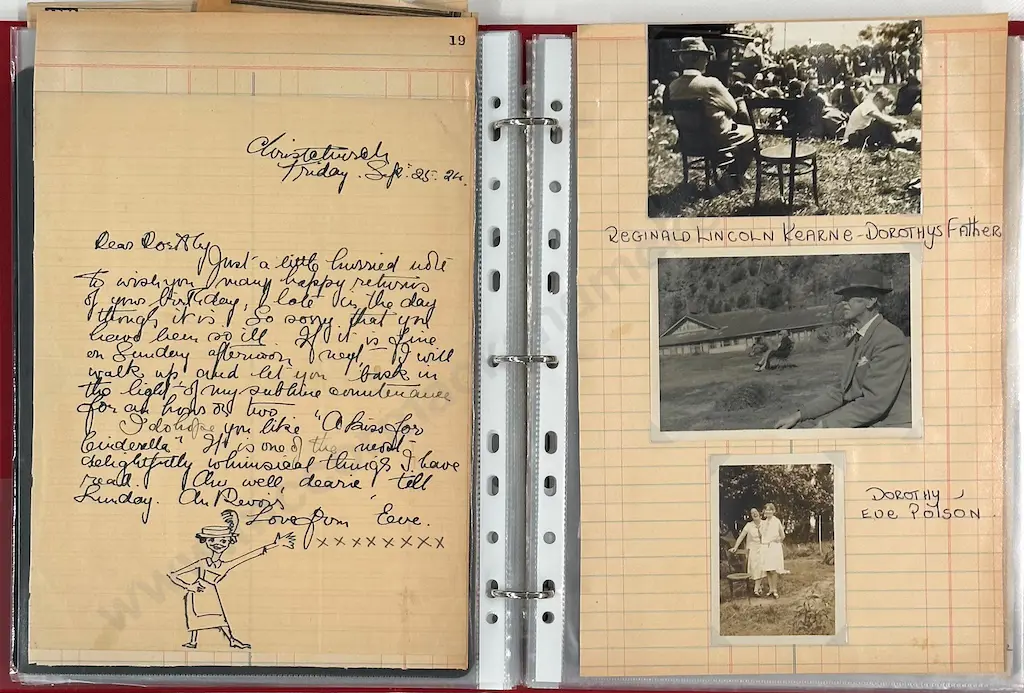 19
Christchurch
Friday. Sept. 25. 24.
Dear Dorothy
Just a little hurried note
to wish you many happy returns
of your birthday, late in the day
though it is. So sorry that you
have been so ill. If it is fine
on Sunday afternoon next I will
walk up and let you bask in
the light of my sublime countenance
for an hour or two.
I do hope you like "A Kiss for
Cinderella" It is one of the most
delightfully whimsical things I have
read. Au well, dearie till
Sunday. Au Revoir
Love from Eve.
x x x x x x x x x x
REGINALD LINCOLN KEARNE - DOROTHYS FATHER
DOROTHY
EVE POYSON